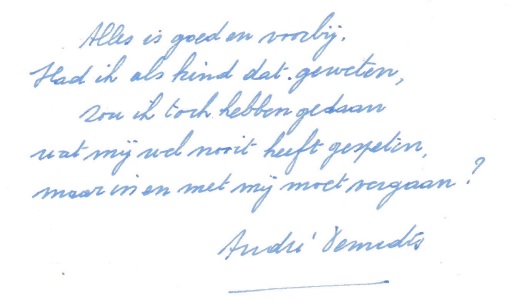 Alles is goed en voorbij.
Had ik als kind dat geweten,
zou ik toch hebben gedaan
wat mij wel nooit heeft gespeten,
maar in en met mij moet vergaan?
André Demedts